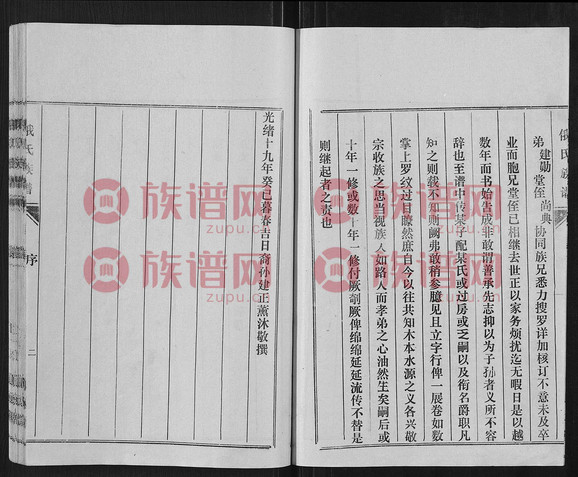 弟 建勋 堂侄 尚典 协同族兄悉力搜罗详加核订不意未及卒
业而胞兄堂侄已相继去世正以家务烦扰迄无暇日是以越
数年而书始告成非敢谓善承先志抑以为子孙者义所不容
辞也至谱中传某子配某氏或过房或乏嗣以及衔名爵职凡
知之则载不知则阙弗敢稍参臆见且立字行俾一展卷如数
掌上罗纹过目瞭然庶自今以往共知木本水源之义各兴敬
宗收族之思当视族人如路人而孝弟之心油然生矣嗣后或
十年一修或数十年一修付厥剞厥俾绵绵延延流传不替是
则继起者之责也
光绪十九年癸巳暮春吉日裔孙建正薰沐敬撰
俄氏族谱
序
二
族谱网
zupu.cn